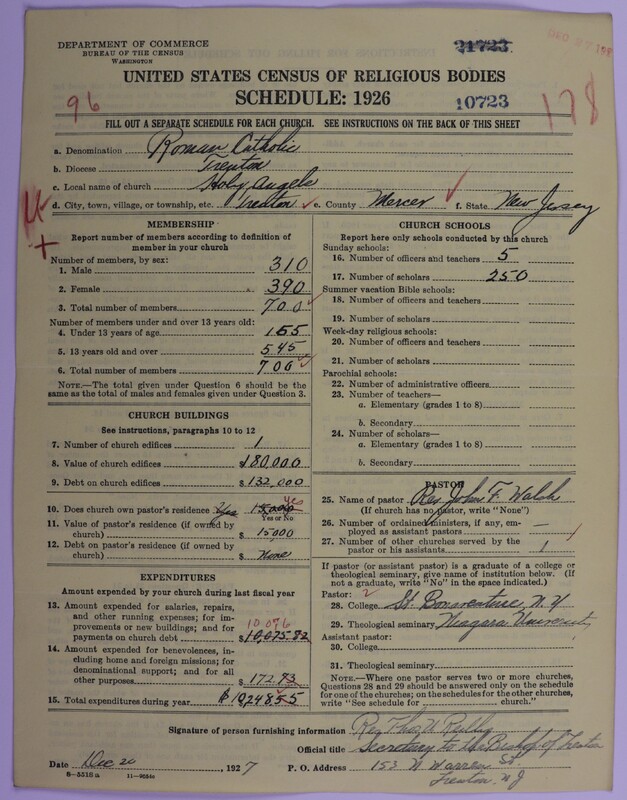 DEPARTMENT OF COMMERCE
BUREAU OF THE CENSUS
WASHINGTON
21723
UNITED STATES CENSUS OF RELIGIOUS BODIES
SCHEDULE: 1926
96
10723
178
FILL OUT A SEPARATE SCHEDULE FOR EACH CHURCH. SEE INSTRUCTIONS ON THE BACK OF THIS SHEET
a. Denomination Roman Catholic
b. Diocese Trenton
c. Local name of church Holy Angels
d. City, town, village, or township, etc. Trenton e. County Mercer f. State New Jersey
MEMBERSHIP
Report number of members according to definition of member in your church
Number of members, by sex:
1. Male 310
2. Female 390
3. Total number of members 700
Number of members under and over 13 years old:
4. Under 13 years of age 155
5. 13 years old and over 545
6. Total number of members 700
NOTE.—The total given under Question 6 should be the same as the total of males and females given under Question 3.
CHURCH BUILDINGS
See instructions, paragraphs 10 to 12
7. Number of church edifices 1
8. Value of church edifices $180,000
9. Debt on church edifices $132,000
10. Does church own pastor's residence? Yes 15,000 yes
Yes or No
11. Value of pastor's residence (if owned by church) $ 15,000
12. Debt on pastor's residence (if owned by church) $ None
EXPENDITURES
Amount expended by your church during last fiscal year
13. Amount expended for salaries, repairs, and other running expenses; for improvements or new buildings; and for payments on church debt 10.076 $10,075.82
14. Amount expended for benevolences, including home and foreign missions; for denominational support; and for all other purposes $ 172.73
15. Total expenditures during year $ 10,248.55
CHURCH SCHOOLS
Report here only schools conducted by this church
Sunday schools:
16. Number of officers and teachers 5
17. Number of scholars 250
Summer vacation Bible schools:
18. Number of officers and teachers
19. Number of scholars
Week-day religious schools:
20. Number of officers and teachers
21. Number of scholars
Parochial schools:
22. Number of administrative officers
23. Number of teachers—
a. Elementary (grades 1 to 8)
b. Secondary
24. Number of scholars—
a. Elementary (grades 1 to 8)
b. Secondary
PASTOR
25. Name of pastor Rev. John F. Walsh
(If church has no pastor, write "None")
26. Number of ordained ministers, if any, employed as assistant pastors —
27. Number of other churches served by the pastor or his assistants 1
If pastor (or assistant pastor) is a graduate of a college or theological seminary, give name of institution below. (If not a graduate, write "No" in the space indicated.)
Pastor: 2
28. College St. Bonaventure, N.Y
29. Theological seminary Niagara University
Assistant pastor:
30. College
31. Theological seminary
NOTE.—Where one pastor serves two or more churches, Questions 28 and 29 should be answered only on the schedule for one of the churches; on the schedules for the other churches, write "See schedule for church."
Signature of person furnishing information Rev. Thos. U. Reilly
Official title Secretary to the Bishop of Trenton
Date Dec 20, 1927 P. O. Address 153 N Warren St.
Trenton, N J
8-5518a 11-9554c